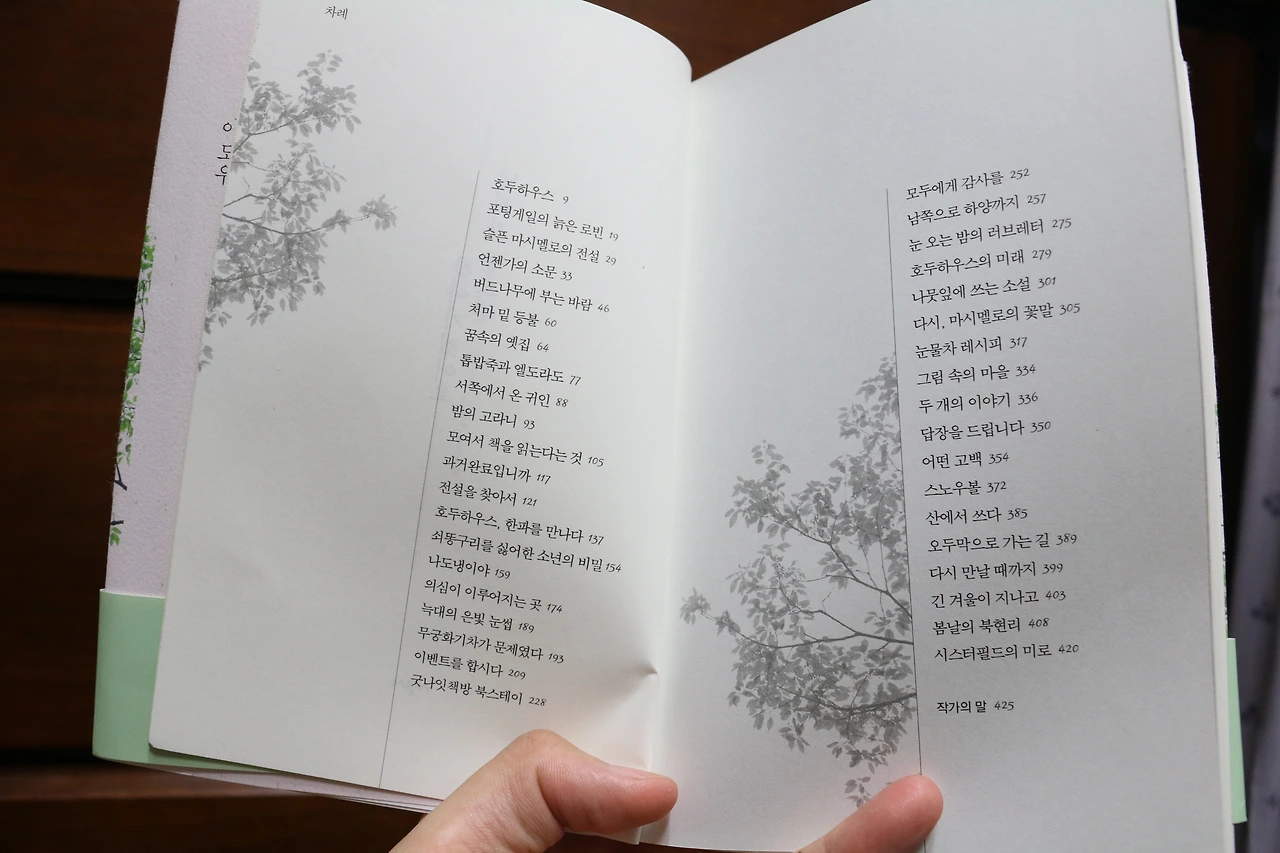 차례
이도우
호두하우스 9
포팅게일의 늙은 로빈 19
슬픈 마시멜로의 전설 29
언젠가의 소문 33
버드나무에 부는 바람 46
처마 밑 등불 60
꿈속의 옛집 64
톱밥죽과 엘도라도 77
서쪽에서 온 귀인 88
밤의 고라니 93
모여서 책을 읽는다는 것 105
과거완료입니까 117
전설을 찾아서 121
호두하우스, 한파를 만나다 137
쇠똥구리를 싫어한 소년의 비밀 154
나도냉이야 159
의심이 이루어지는 곳 174
늑대의 은빛 눈썹 189
무궁화기차가 문제였다 193
이벤트를 합시다 209
굿나잇책방 북스테이 228
모두에게 감사를 252
남쪽으로 하양까지 257
눈 오는 밤의 러브레터 275
호두하우스의 미래 279
나뭇잎에 쓰는 소설 301
다시, 마시멜로의 꽃말 305
눈물차 레시피 317
그림 속의 마을 334
두 개의 이야기 336
답장을 드립니다 350
어떤 고백 354
스노우볼 372
산에서 쓰다 385
오두막으로 가는 길 389
다시 만날 때까지 399
긴 겨울이 지나고 403
봄날의 북현리 408
시스터필드의 미로 420
작가의 말 425